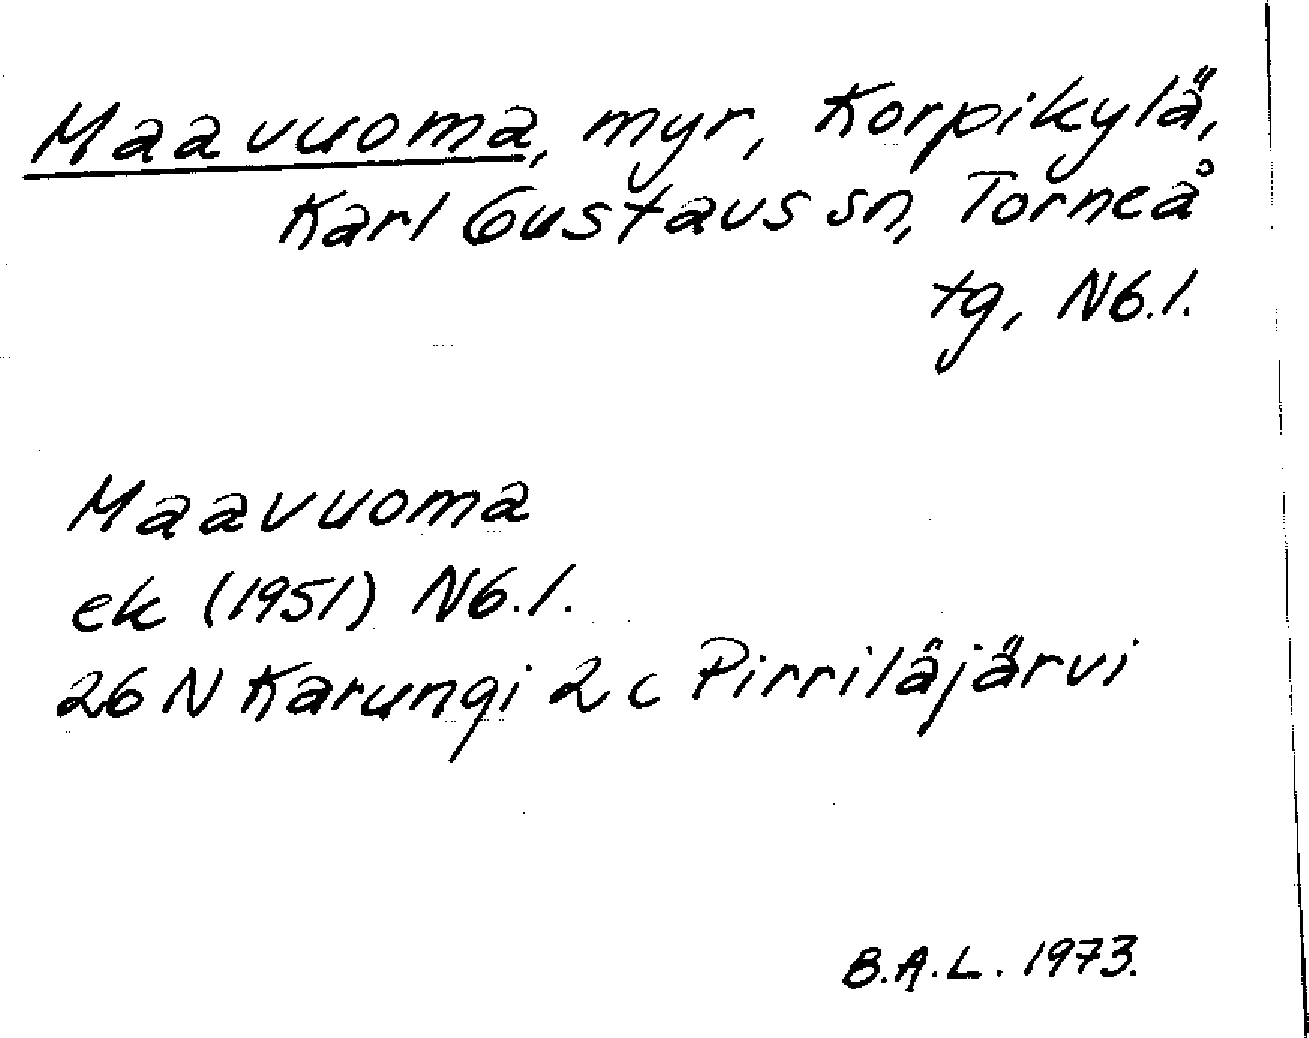 Maavuoma, myr, Korpikylä,
Karl Gustavs sn, Torneå
tg, N6.1.
Maavuoma
ek (1951) N6.1.
26 N Karungi 2 c Pirriläjärvi
B.A.L. 1973.